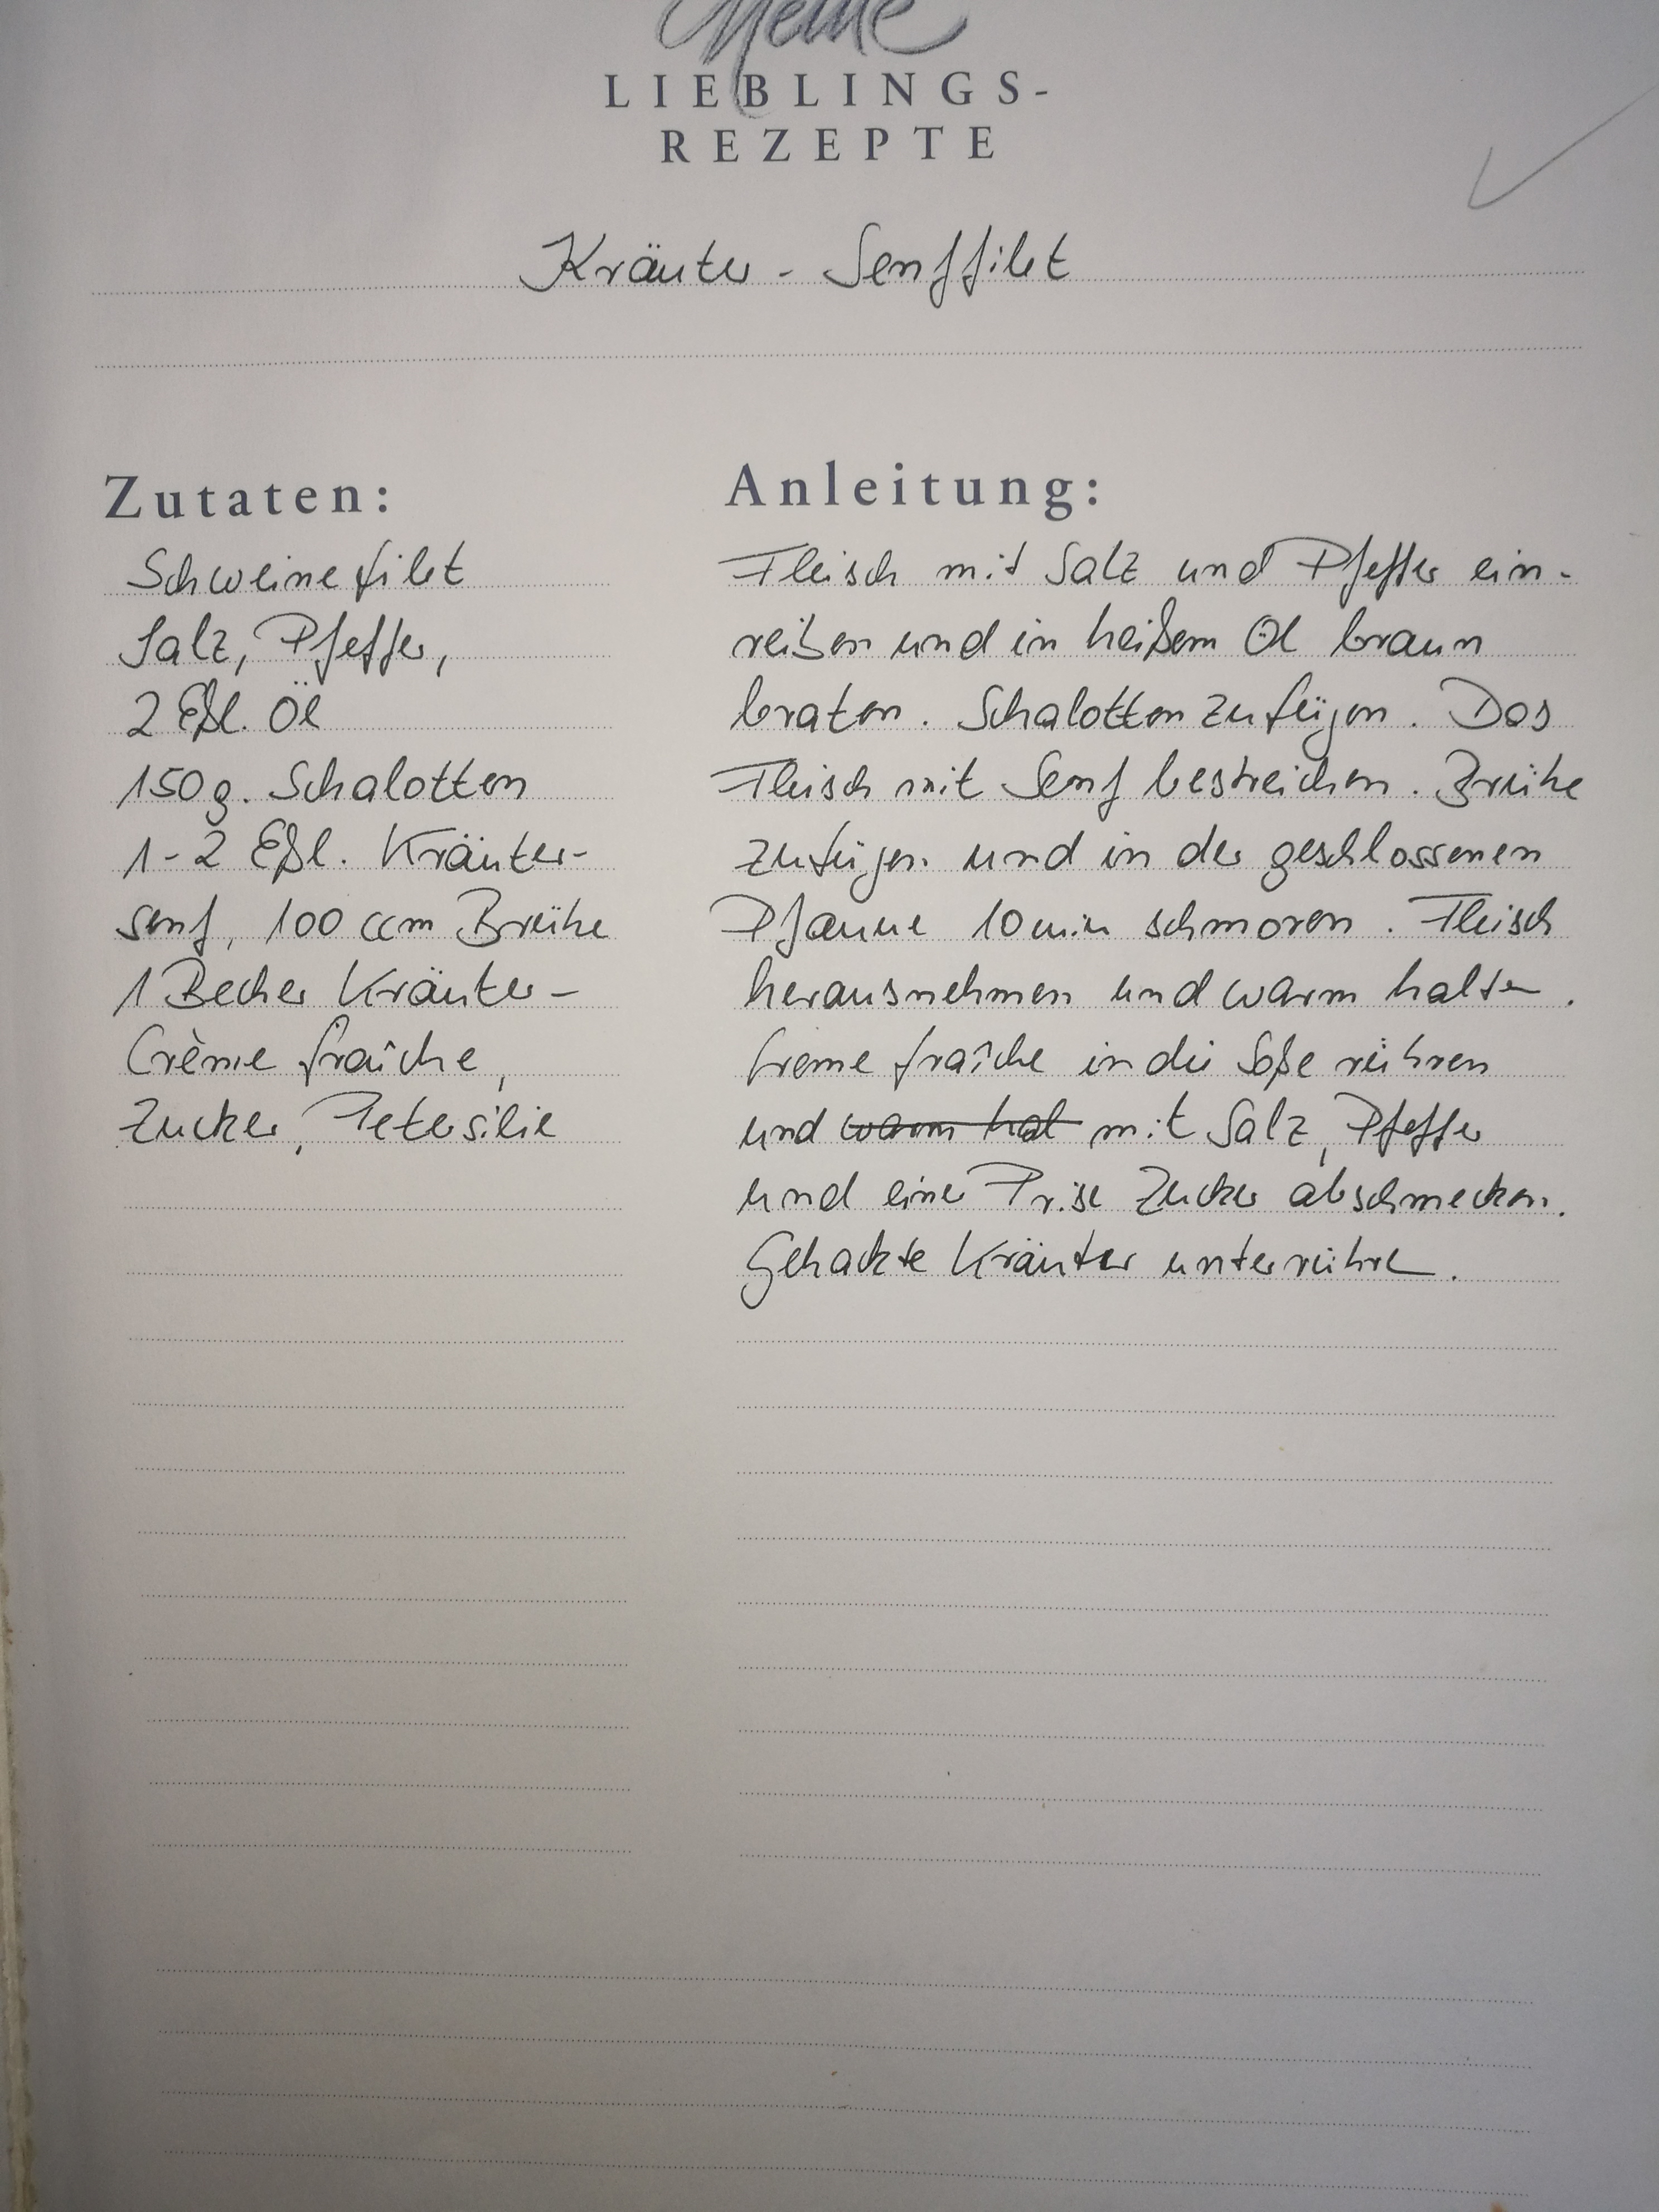 Meine
LIEBLINGS-
REZEPTE
Kräuter - Senffilet
Zutaten:
Schweinefilet
Salz, Pfeffer,
2 Eßl. Öl
150 g. Schalotten
1-2 Eßl. Kräuter-
senf, 100 ccm Brühe
1 Becher Kräuter-
Crème fraîche,
Zucker, Petersilie
Anleitung:
Fleisch mit Salz und Pfeffer ein-
reiben und in heißem Öl braun
braten. Schalotten zufügen. Das
Fleisch mit Senf bestreichen. Brühe
zufügen und in der geschlossenen
Pfanne 10 min schmoren. Fleisch
herausnehmen und warm halten.
Creme fraîche in die Soße rühren
und warm hat mit Salz, Pfeffer
und einer Prise Zucker abschmecken.
Gehackte Kräuter unterrühren.